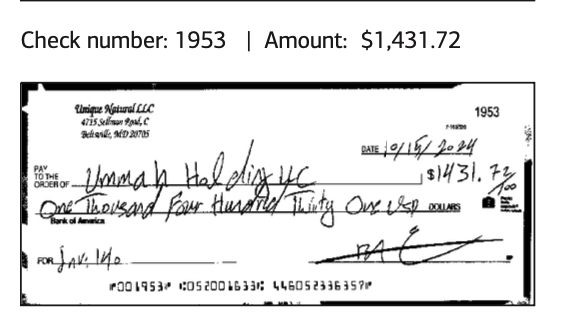 Check number: 1953 | Amount: $1,431.72
Unique Natural LLC
4715 Sellman Road, C
Beltsville, MD 20705
1953
DATE 10/15/2024
PAY TO THE ORDER OF Ummah Holding LLC $1431.72/100
One Thousand Four Hundred Thirty One USD DOLLARS
Bank of America
FOR Inv: 140
⑈001953⑈ ⑆052001633⑆ 446052336357⑈